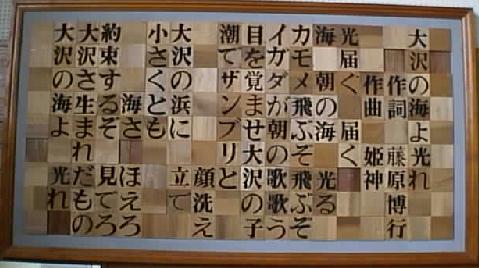 大沢の海よ光れ
作詞 藤原博行
作曲 姫神
光届ぐ 届ぐ
海 朝の海 光る
カモメ飛ぶぞ飛ぶぞ
イガダが朝の歌歌う
目を覚ませ大沢の子
潮でザンブリと
顔洗え
大沢の浜に 立て
小さくとも
海さ ほえろ
約束するぞ 見てろ
大沢さ生まれだもの
大沢の海よ 光れ